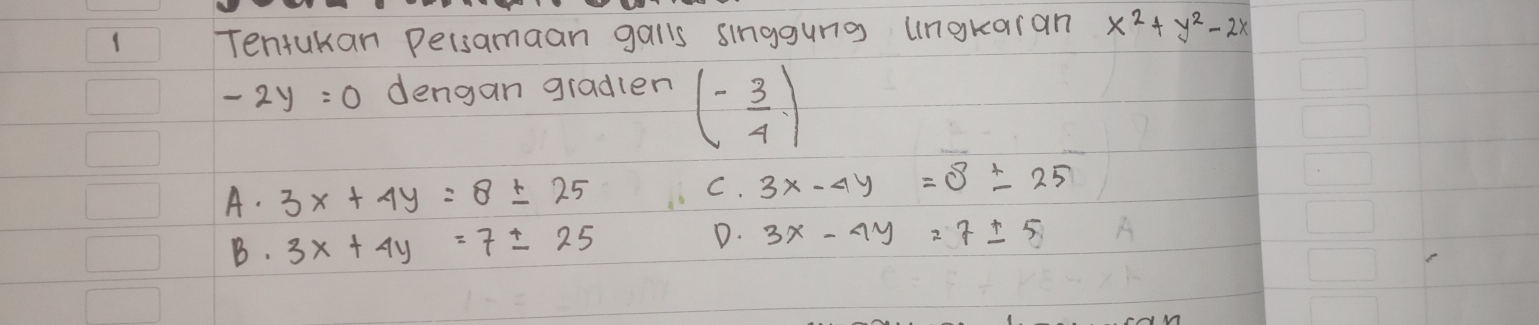 1 Tentukan persamaan garis singgung lingkaran x² + y² - 2x
- 2y = 0 dengan gradien (- 3/4)
A. 3x + 4y = 8 ± 25 C. 3x - 4y = 8 ± 25
B. 3x + 4y = 7 ± 25 D. 3x - 4y = 7 ± 5